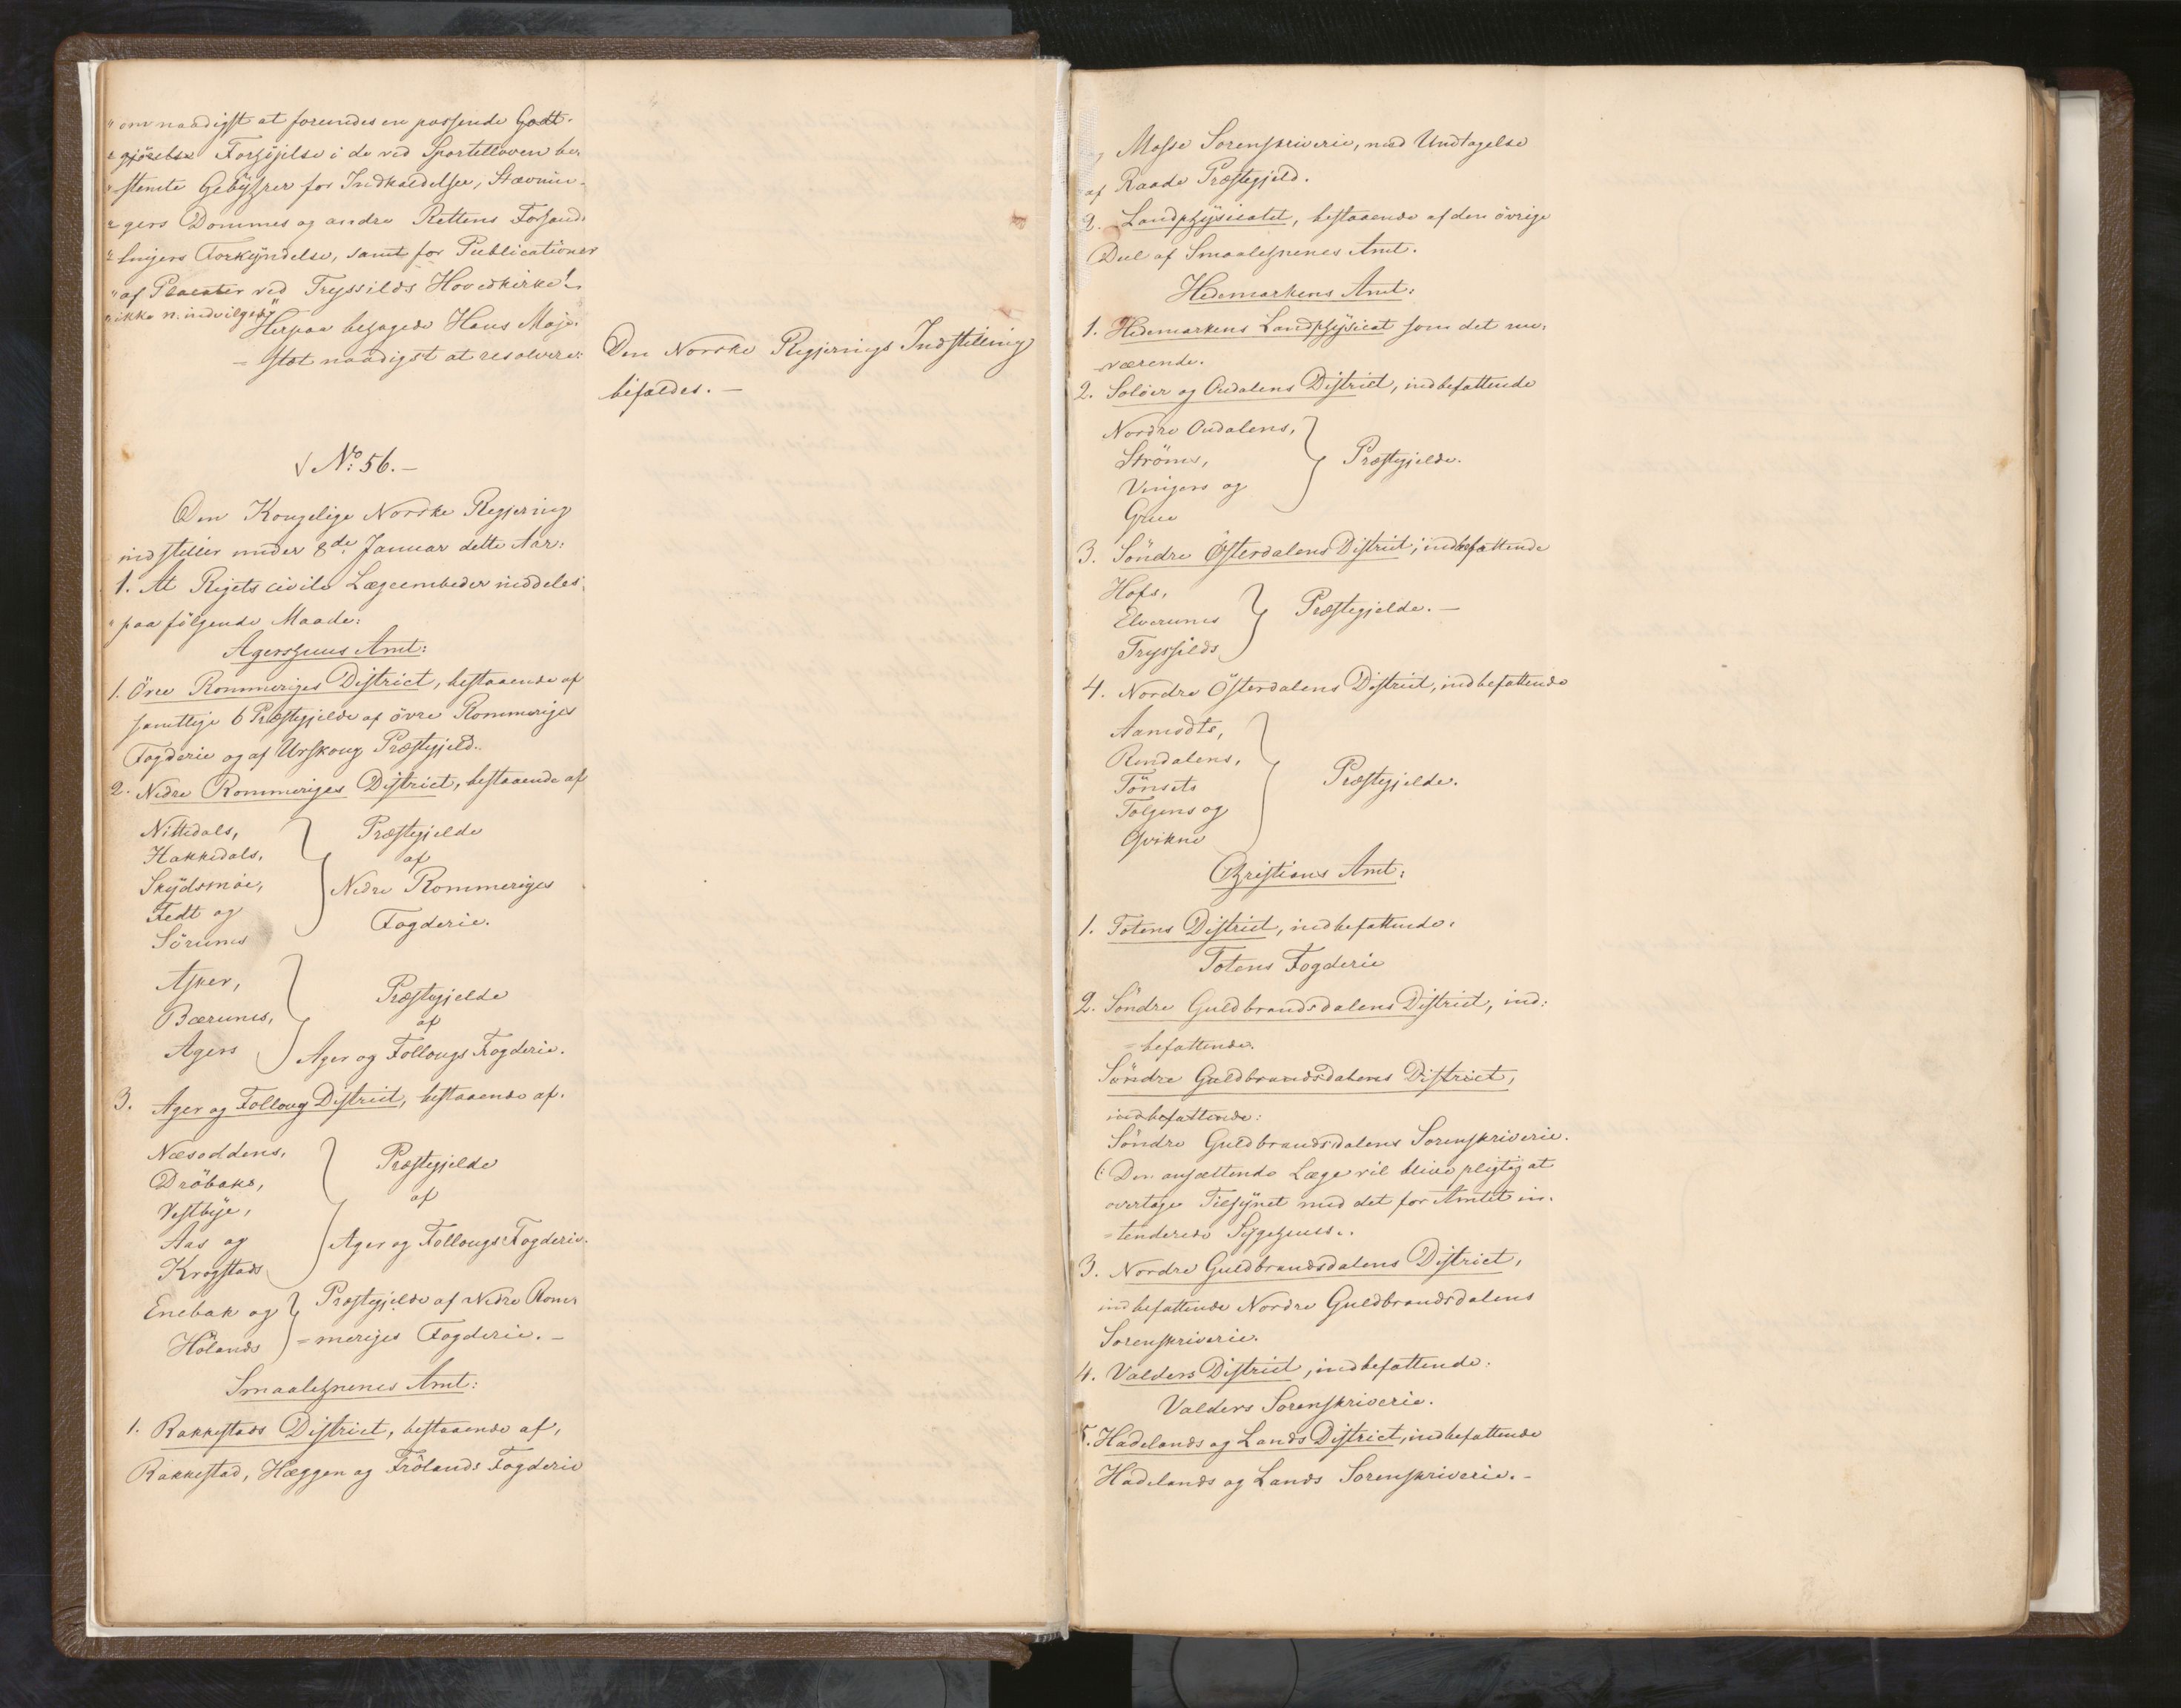 " om naadigst at forundes en passende Godt-
" gjörelse Forhöjelse i de ved Sportelloven be-
" stemte Gebyhrer for Indkaldelser, Stævnin-
" gers Dommes og andre Rettens Forhand-
" lingers Forkyndelse, samt for Publicationer
" af Placater ved Tryssilds Hovedkirke!
" ikke n. indvilges"
Herpaa behagede Hans Maje-
= stæt naadigst at resolvere:
Den Norske Regjerings Indstilling
bifaldes. —
√ No: 56. —
Den Kongelige Norske Regjering
indstiller under 8de Januar dette Aar:
1. At Rigets civile Lægeembeder inddeles
" paa fölgende Maade:
Agershuus Amt:
1. Övre Rommeriges District, bestaaende af
samtlige 6 Præstegjelde af övre Rommeriges
Fogderie og af Urskoug Præstegjeld.
2. Nedre Rommeriges District, bestaaende af
Nittedals,
Hakkedals,
Skydsmöe,
Fedt og
Sörums
Præstegjelde
af
Nedre Rommeriges
Fogderie.
Asker,
Bærums,
Agers
Præstegjelde
af
Ager og Follougs Fogderie.
3. Ager og Folloug District, bestaaende af.
Næsoddens,
Dröbaks,
Vestbye,
Aas og
Krogstads
Præstegjelde
af
Ager og Follougs Fogderie.
Enebak og
Hölands
Præstegjelde af Nedre Rom-
= meriges Fogderie. —
Smaalehnenes Amt:
1. Rakkestads District, bestaaende af,
Rakkestad, Hæggen og Frölands Fogderie
Mosse Sorenskriverie, med Undtagelse
af Raade Præstegjeld.
2. Landphysicatet, bestaaende af den övrige
Deel af Smaalehnenes Amt.
Hedemarkens Amt:
1. Hedemarkens Landphysicat som det nu-
værende.
2. Solöer og Oudalens District, indbefattende
Nordre Oudalens,
Ströms,
Vingers og
Grue
Præstegjelde.
3. Söndre Österdalens District, indbefattende
Hofs,
Elverums
Tryssilds
Præstegjelde. —
4. Nordre Österdalens District, indbefattende
Aamodts,
Rendalens,
Tönsets
Tolgens og
Qvikne
Præstegjelde.
Christians Amt:
1. Totens District, indbefattende.
Totens Fogderie
2. Söndre Guldbrandsdalens District, ind:
= befattende.
Söndre Guldbrandsdalens District,
indbefattende:
Söndre Guldbrandsdalens Sorenskriverie.
(: Den ansættende Læge vil blive pligtig at
overtage Tilsynet med det for Amtet in-
= tenderede Sygehuus.
3. Nordre Guldbrandsdalens District,
indbefattende Nordre Guldbrandsdalens
Sorenskriverie.
4. Valders District, indbefattende.
Valders Sorenskriverie.
5. Hadelands og Lands District, indbefattende
Hadelands og Lands Sorenskriverie. —